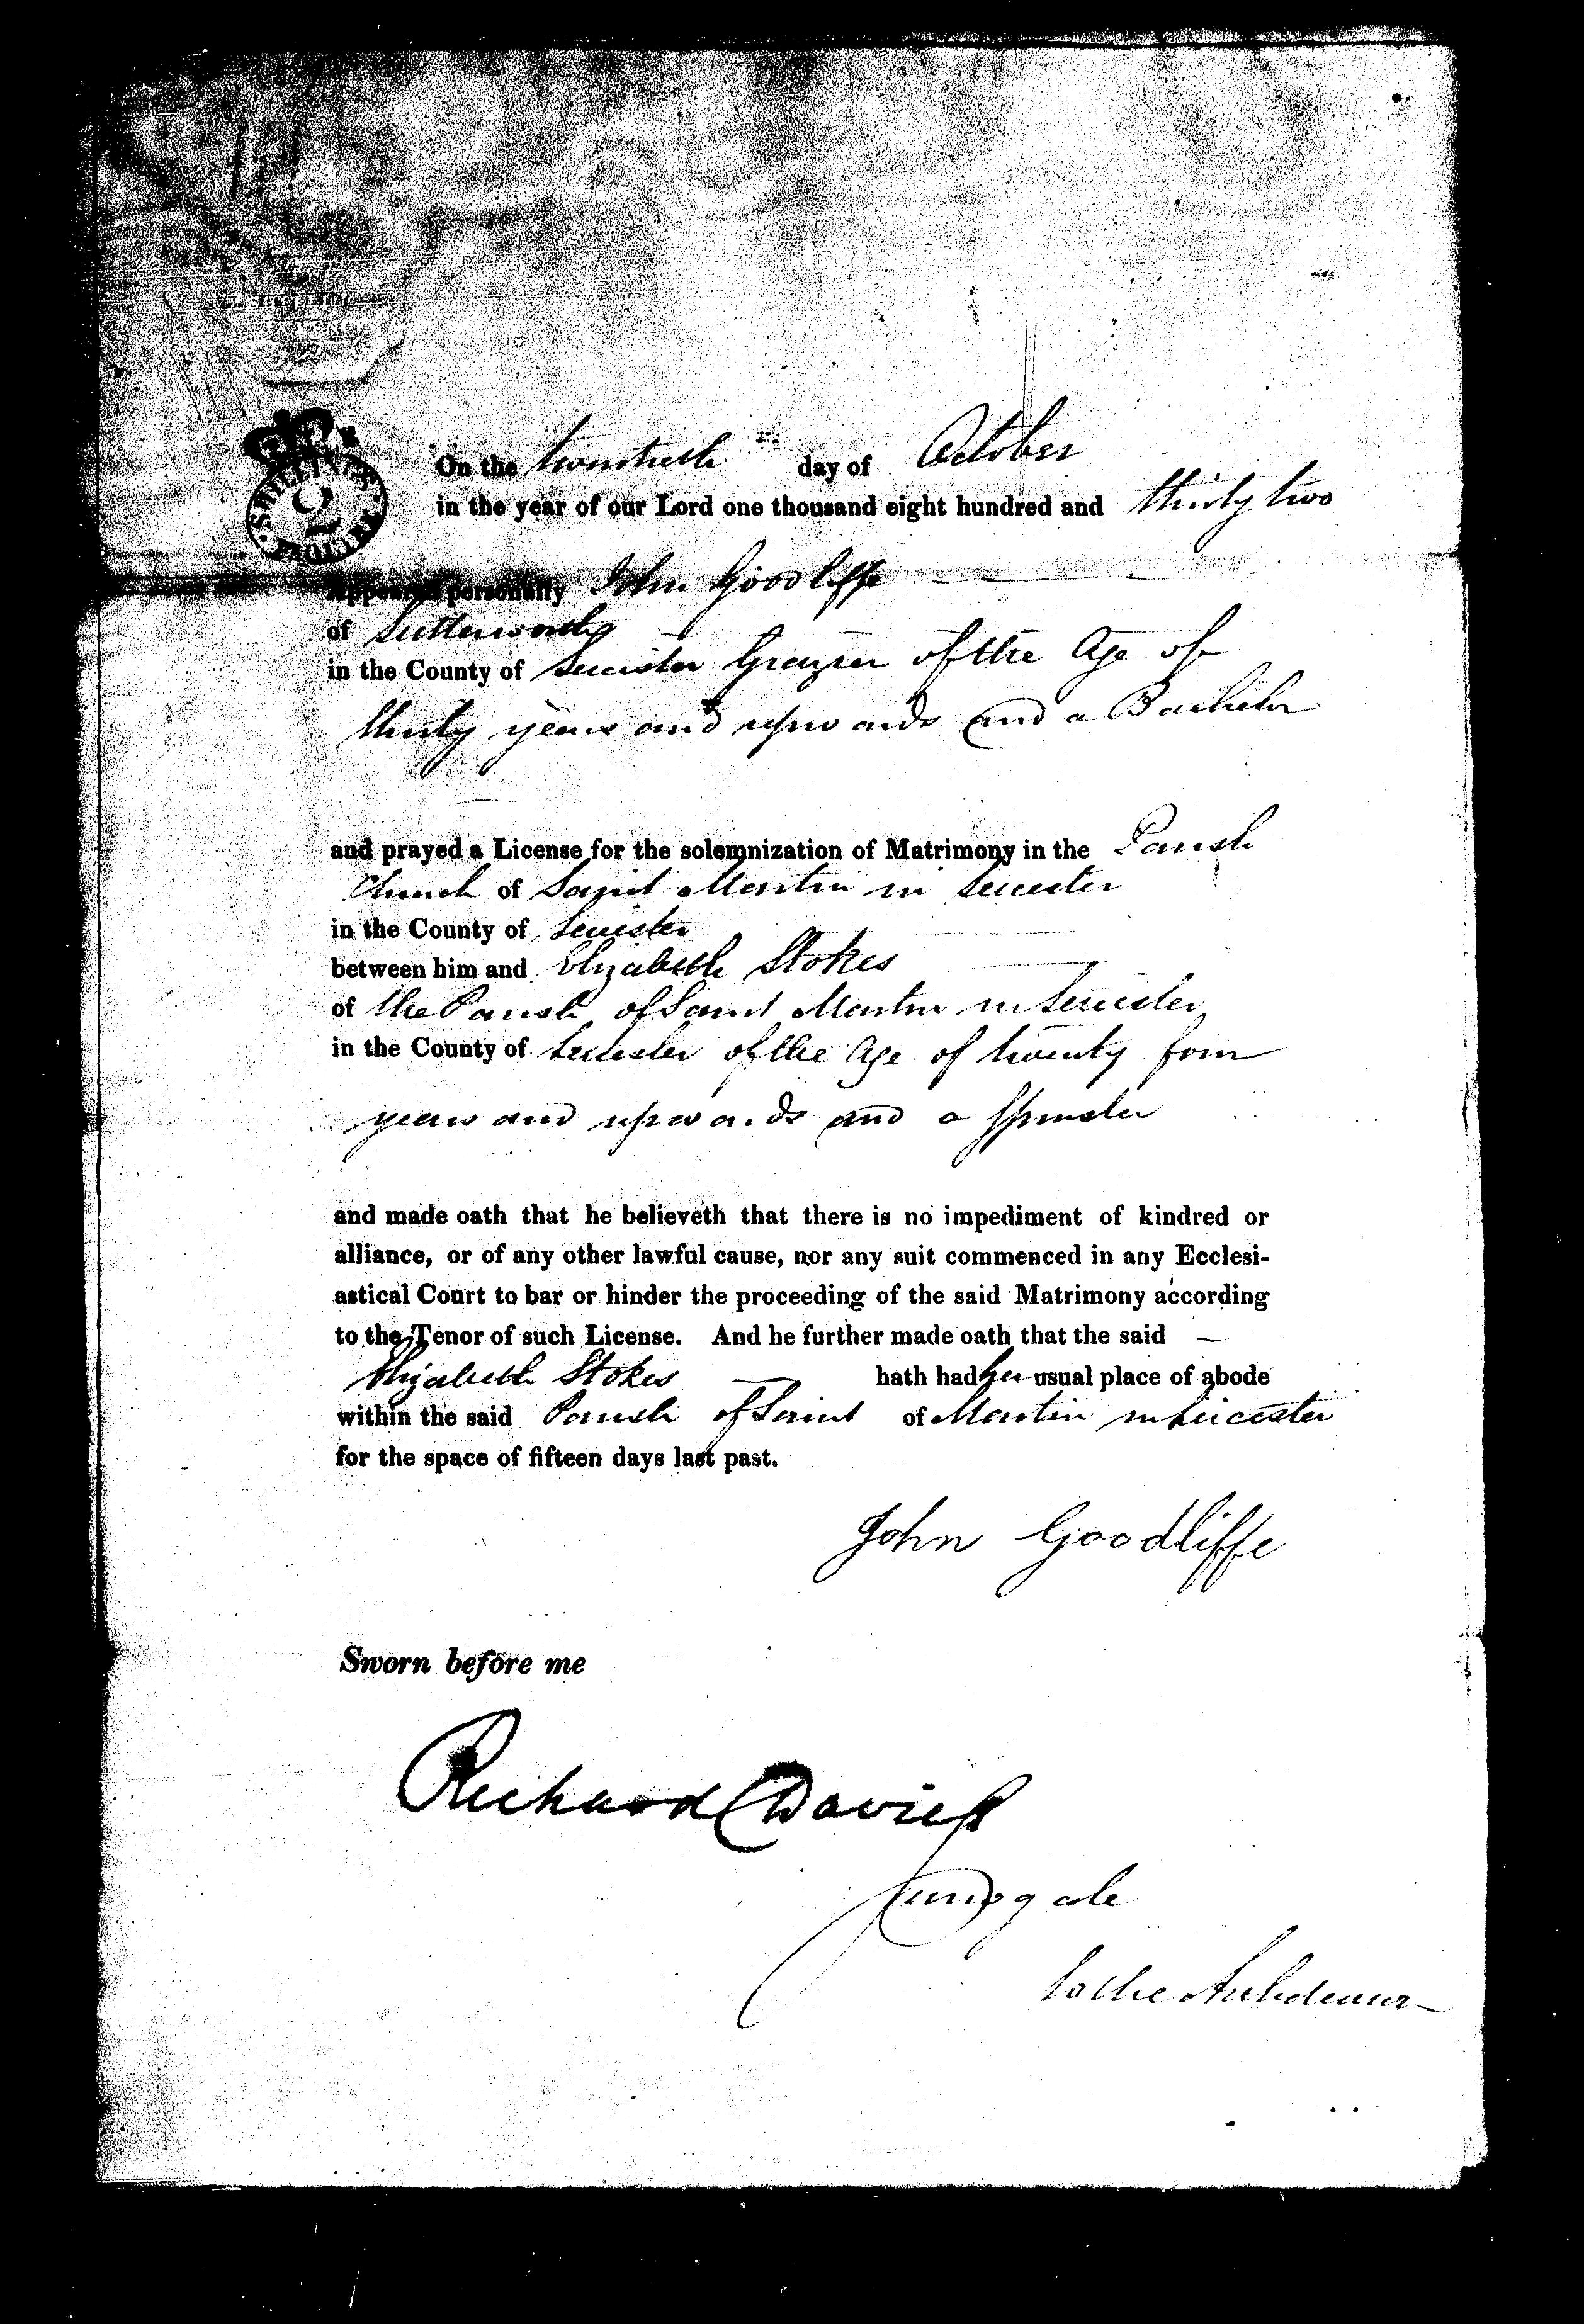 SHILLINGS
On the twentieth day of October
in the year of our Lord one thousand eight hundred and thirty two
Appeared personally John Goodliffe
of Lutterworth
in the County of Leicester Grazier of the Age of
thirty years and upwards and a Bachelor
and prayed a License for the solemnization of Matrimony in the Parish
Church of Saint Martin in Leicester
in the County of Leicester
between him and Elizabeth Stokes
of the Parish of Saint Martin in Leicester
in the County of Leicester of the Age of twenty four
years and upwards and a Spinster
and made oath that he believeth that there is no impediment of kindred or
alliance, or of any other lawful cause, nor any suit commenced in any Ecclesi-
astical Court to bar or hinder the proceeding of the said Matrimony according
to the Tenor of such License. And he further made oath that the said —
Elizabeth Stokes — hath had her usual place of abode
within the said Parish of Saint of Martin in Leicester
for the space of fifteen days last past.
John Goodliffe
Sworn before me
Richard Davies
Surrogate
to the Archdeacon